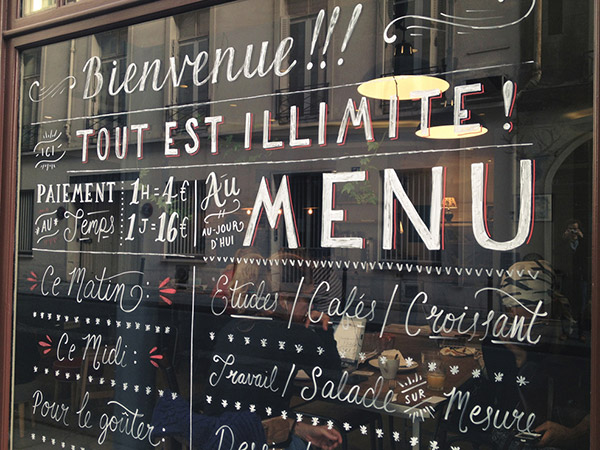 Bienvenue!!!
ICI TOUT EST ILLIMITE!
PAIEMENT
AU Temps
1H=4€
1J=16€
Au
AUJOUR
D'HUI
MENU
Ce Matin:
Etudes / Cafés / Croissant
Ce Midi:
Travail / Salade SUR Mesure
Pour le goûter: